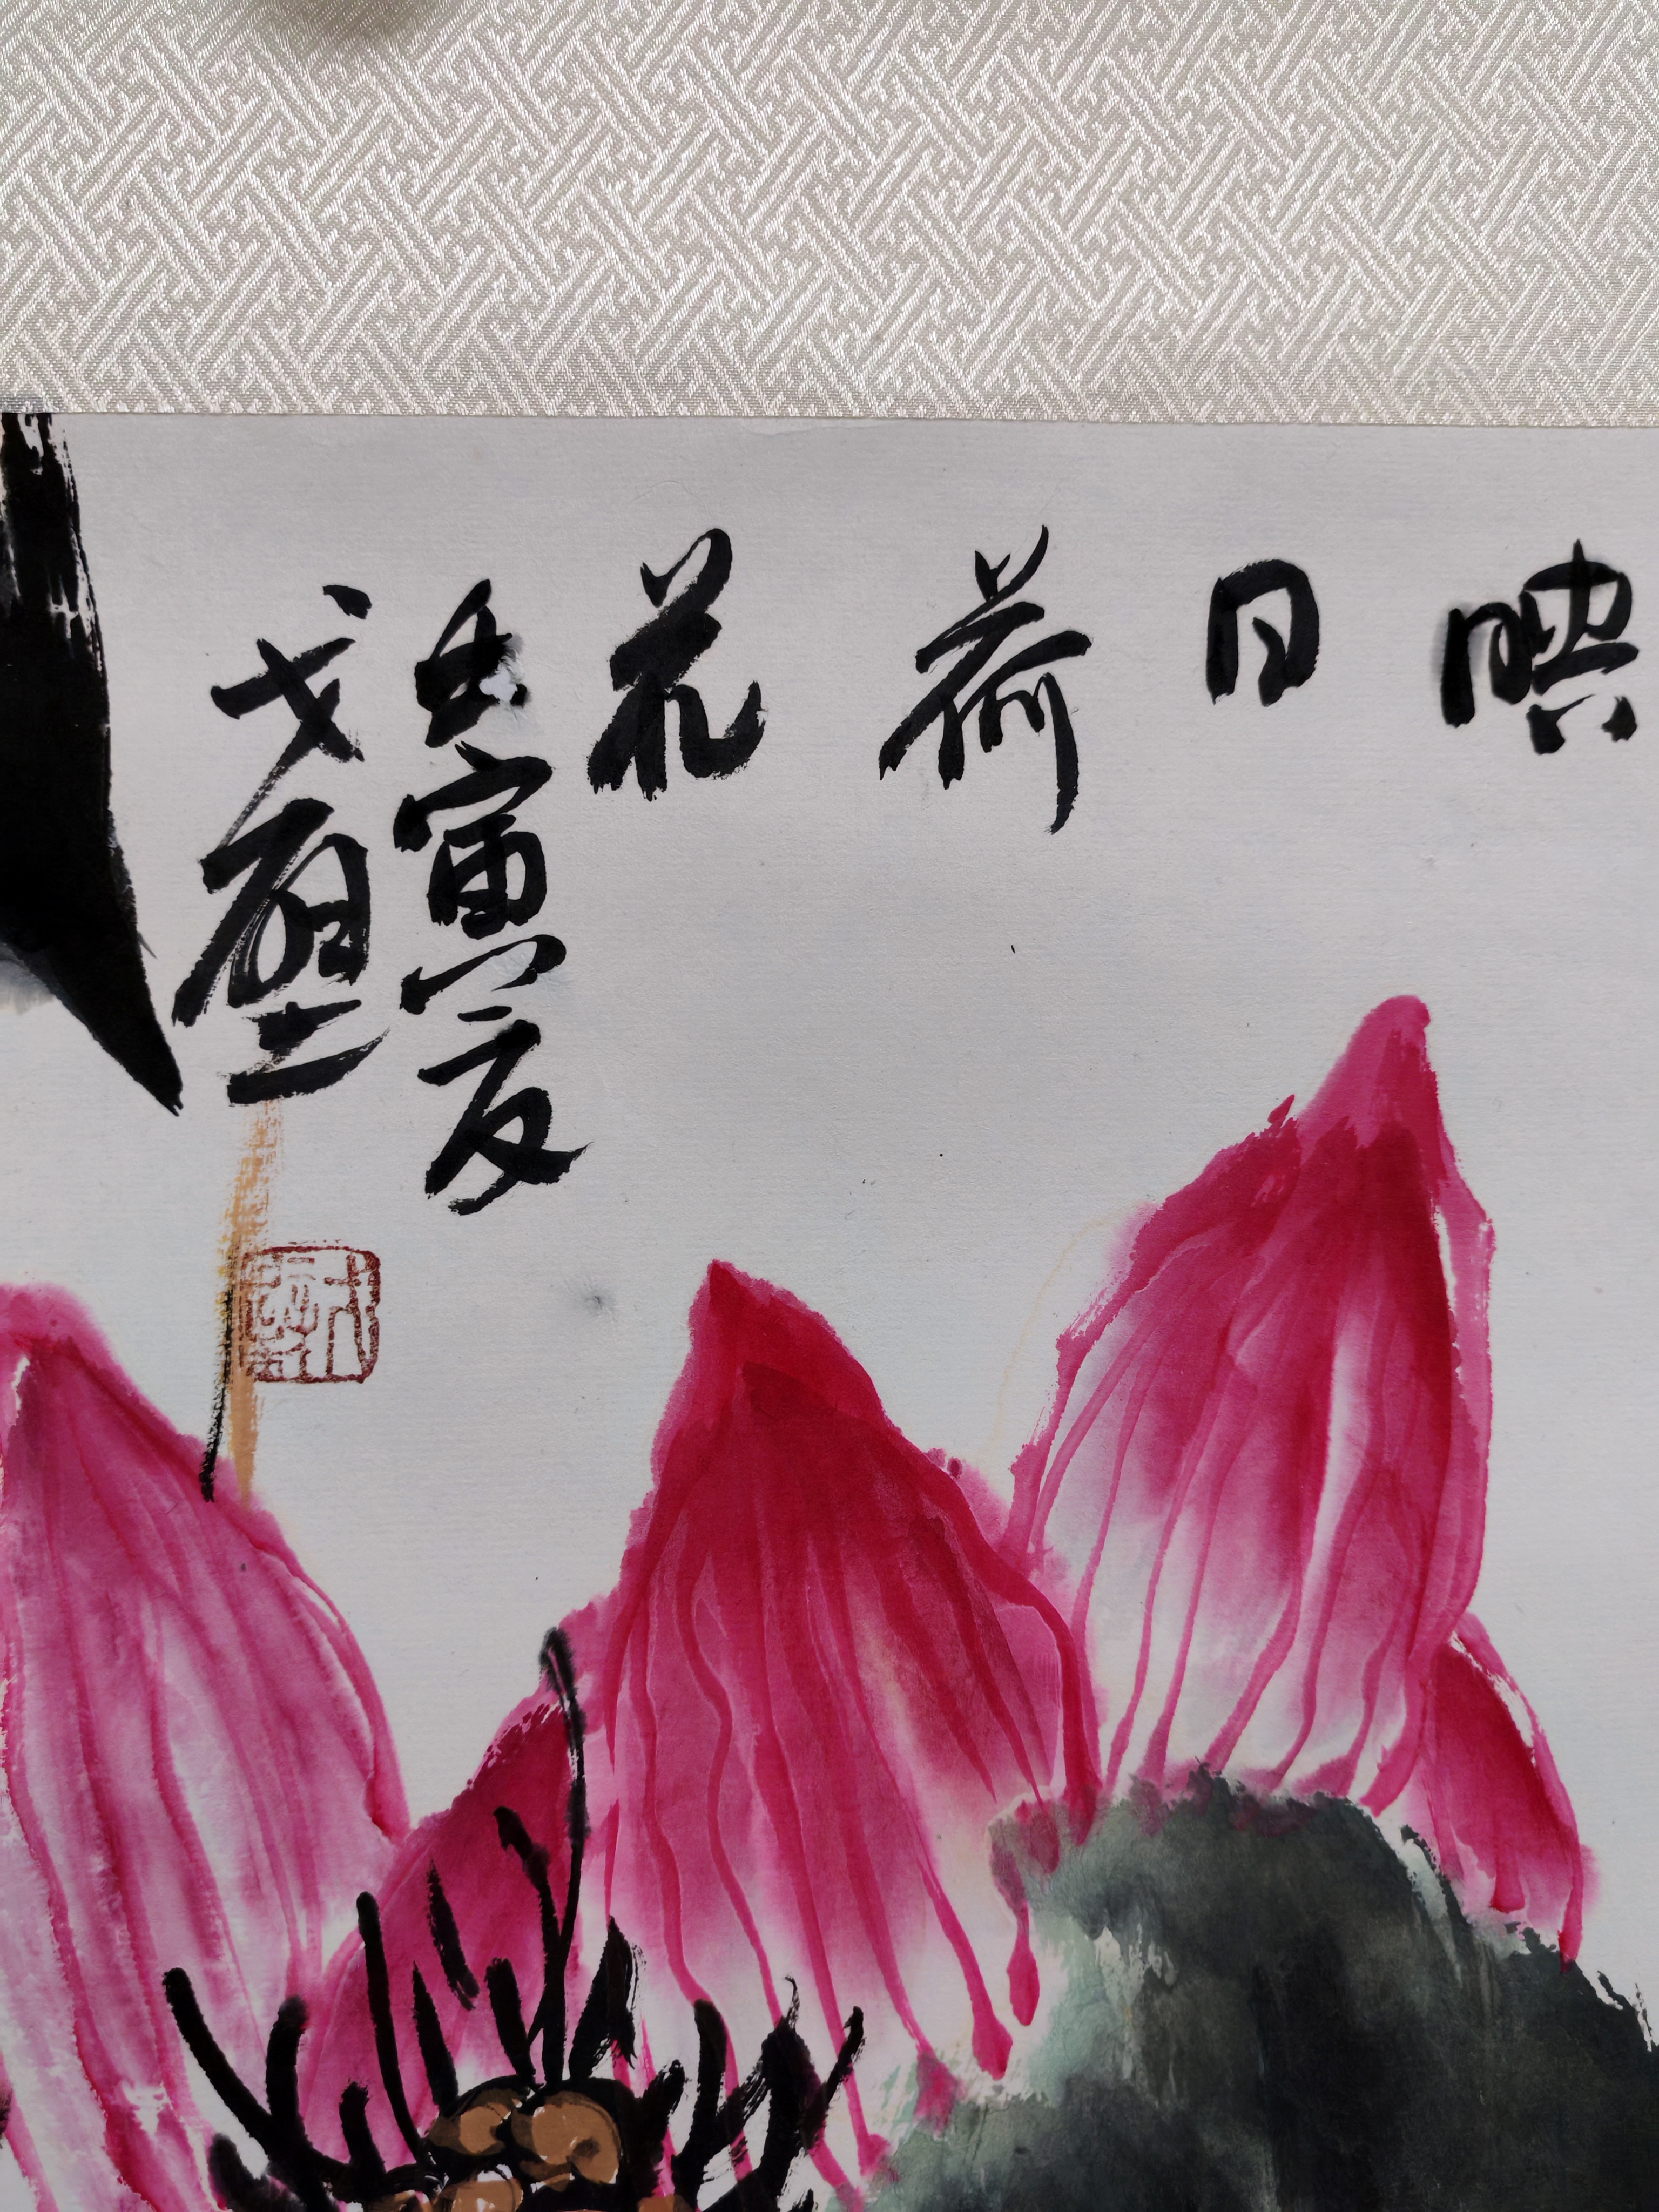 映日荷花
壬寅夏
戈壁